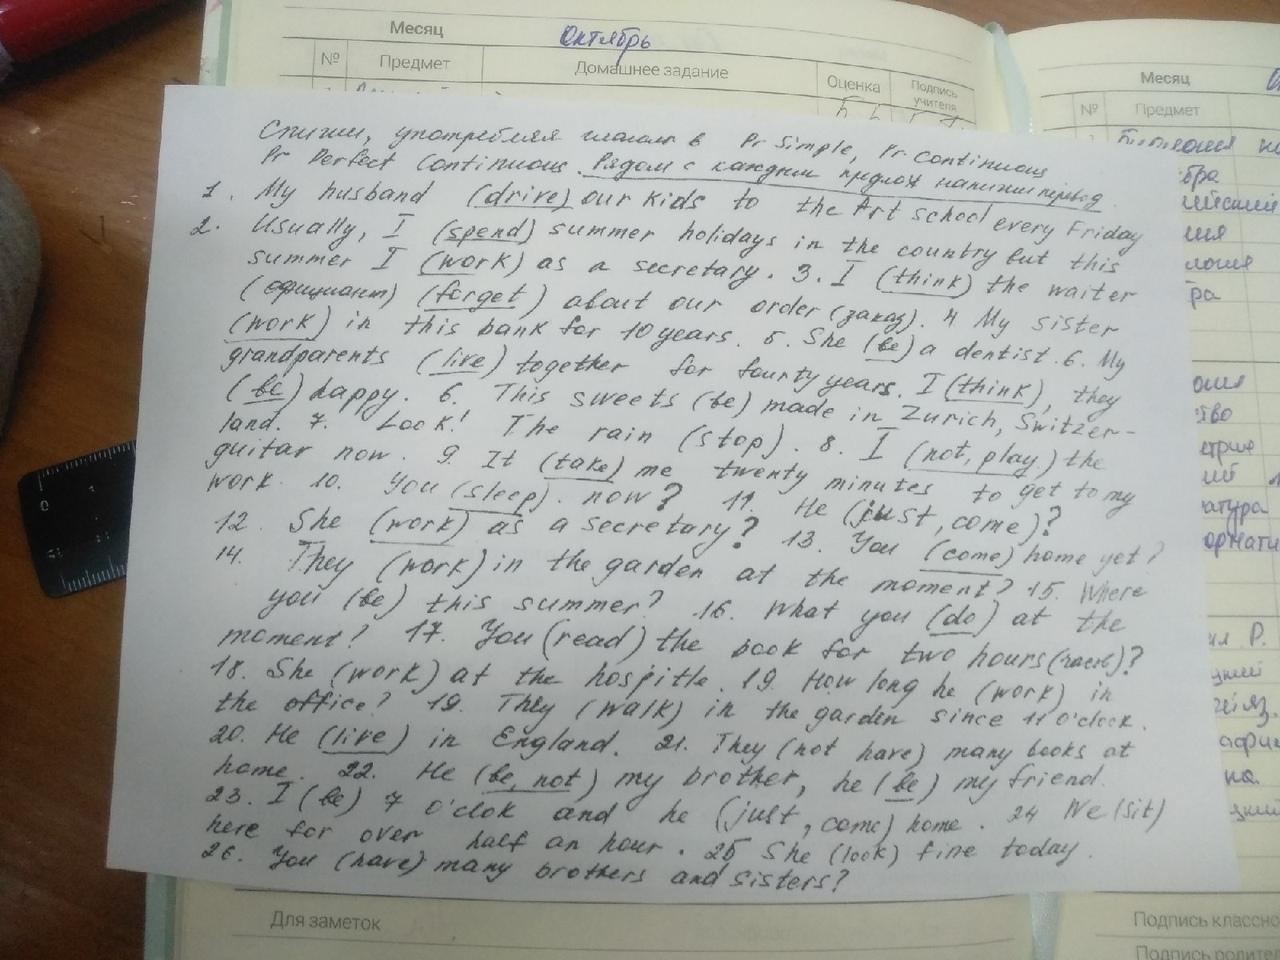 Месяц
Октябрь
№
Предмет
Домашнее задание
Оценка
Подпись
учителя
Месяц
№
Предмет
Спиши, употребляя глагол в Pr Simple, Pr Continuous
Pr Perfect Continuous. Рядом с каждым предлож напиши перевод.
1. My husband (drive) our kids to the Art school every Friday
2. Usually, I (spend) summer holidays in the country but this
summer I (work) as a secretary. 3. I (think) the waiter
(официант) (forget) about our order (заказ). 4 My sister
(work) in this bank for 10 years. 5. She (be) a dentist. 6. My
grandparents (live) together for fourty years. I (think), they
(be) happy. 6. This sweets (be) made in Zurich, Switzer-
land. 7. Look! The rain (stop). 8. I (not, play) the
guitar now. 9. It (take) me twenty minutes to get to my
work. 10. You (sleep). now? 11. He (just, come)?
12. She (work) as a secretary? 13. You (come) home yet?
14. They (work) in the garden at the moment? 15. Where
you (be) this summer? 16. What you (do) at the
moment? 17. You (read) the book for two hours (часов)?
18. She (work) at the hospitle. 19. How long he (work) in
the office? 19. They (walk) in the garden since 11 o'clock.
20. He (live) in England. 21. They (not have) many books at
home. 22. He (be, not) my brother, he (be) my friend.
23. I (be) 7 o'clok and he (just, come) home. 24 We (sit)
here for over half an hour. 25 She (look) fine today.
26. You (have) many brothers and sisters?
Для заметок
Подпись классно
Подпись родител